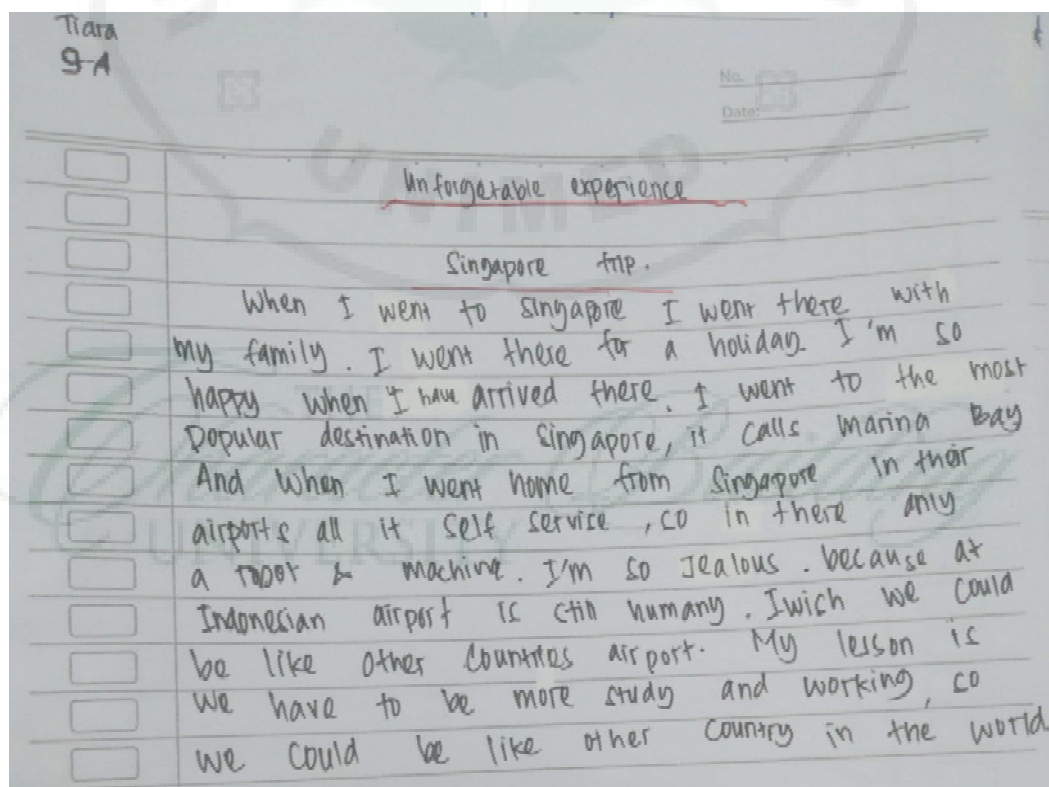 Tiara
9-A
No.
Date:
UNIMED
Unforgetable experience
Singapore trip.
When I went to Singapore I went there with
my family. I went there for a holiday. I'm so
happy when I have arrived there. I went to the most
popular destination in Singapore, it calls marina Bay
And when I went home from Singapore in their
airports all it self service, so in there only
a robot & machine. I'm so Jealous. because at
Indonesian airport is still humany. I wish we could
be like other Countries airport. My lesson is
we have to be more study and working, so
we could be like other country in the world
THE
Character Building
UNIVERSITY